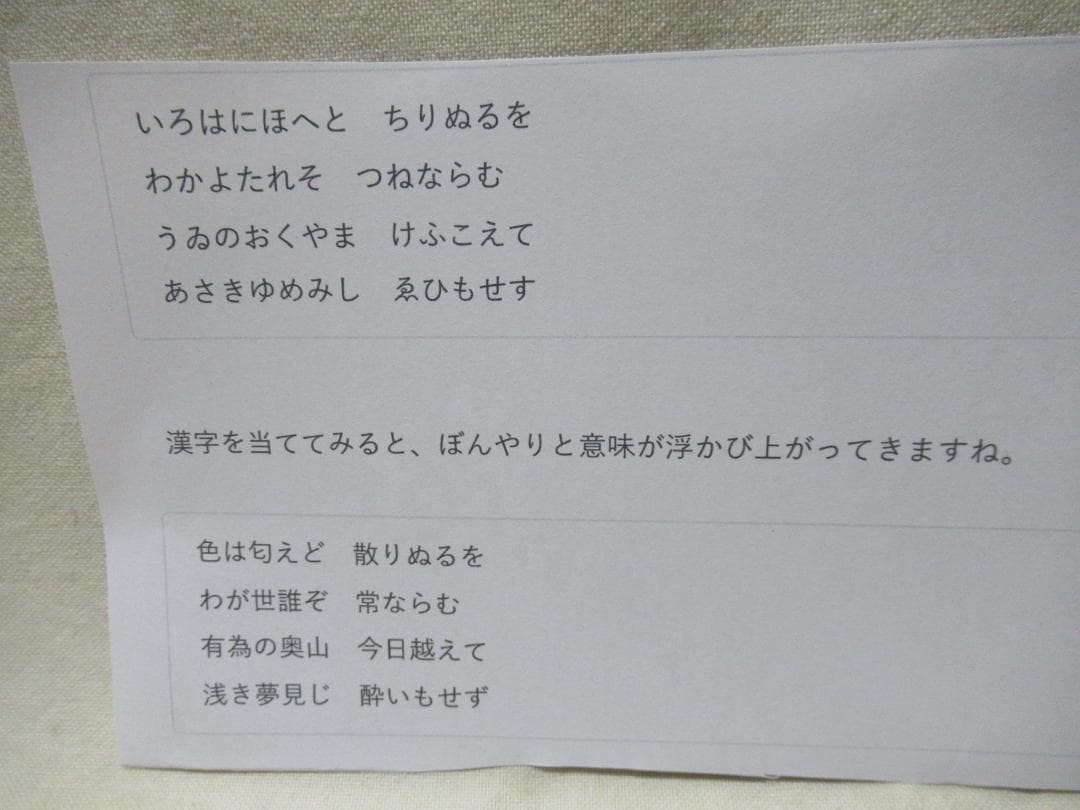 いろはにほへと　ちりぬるを
わかよたれそ　つねならむ
うゐのおくやま　けふこえて
あさきゆめみし　ゑひもせす
漢字を当ててみると、ぼんやりと意味が浮かび上がってきますね。
色は匂えど　散りぬるを
わが世誰ぞ　常ならむ
有為の奥山　今日越えて
浅き夢見じ　酔いもせず